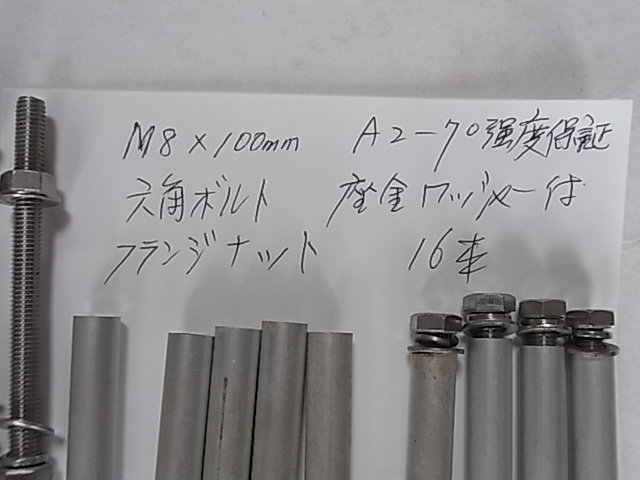 M8×100mm A2-70強度保証
六角ボルト 座金ワッシャー付
フランジナット 16本